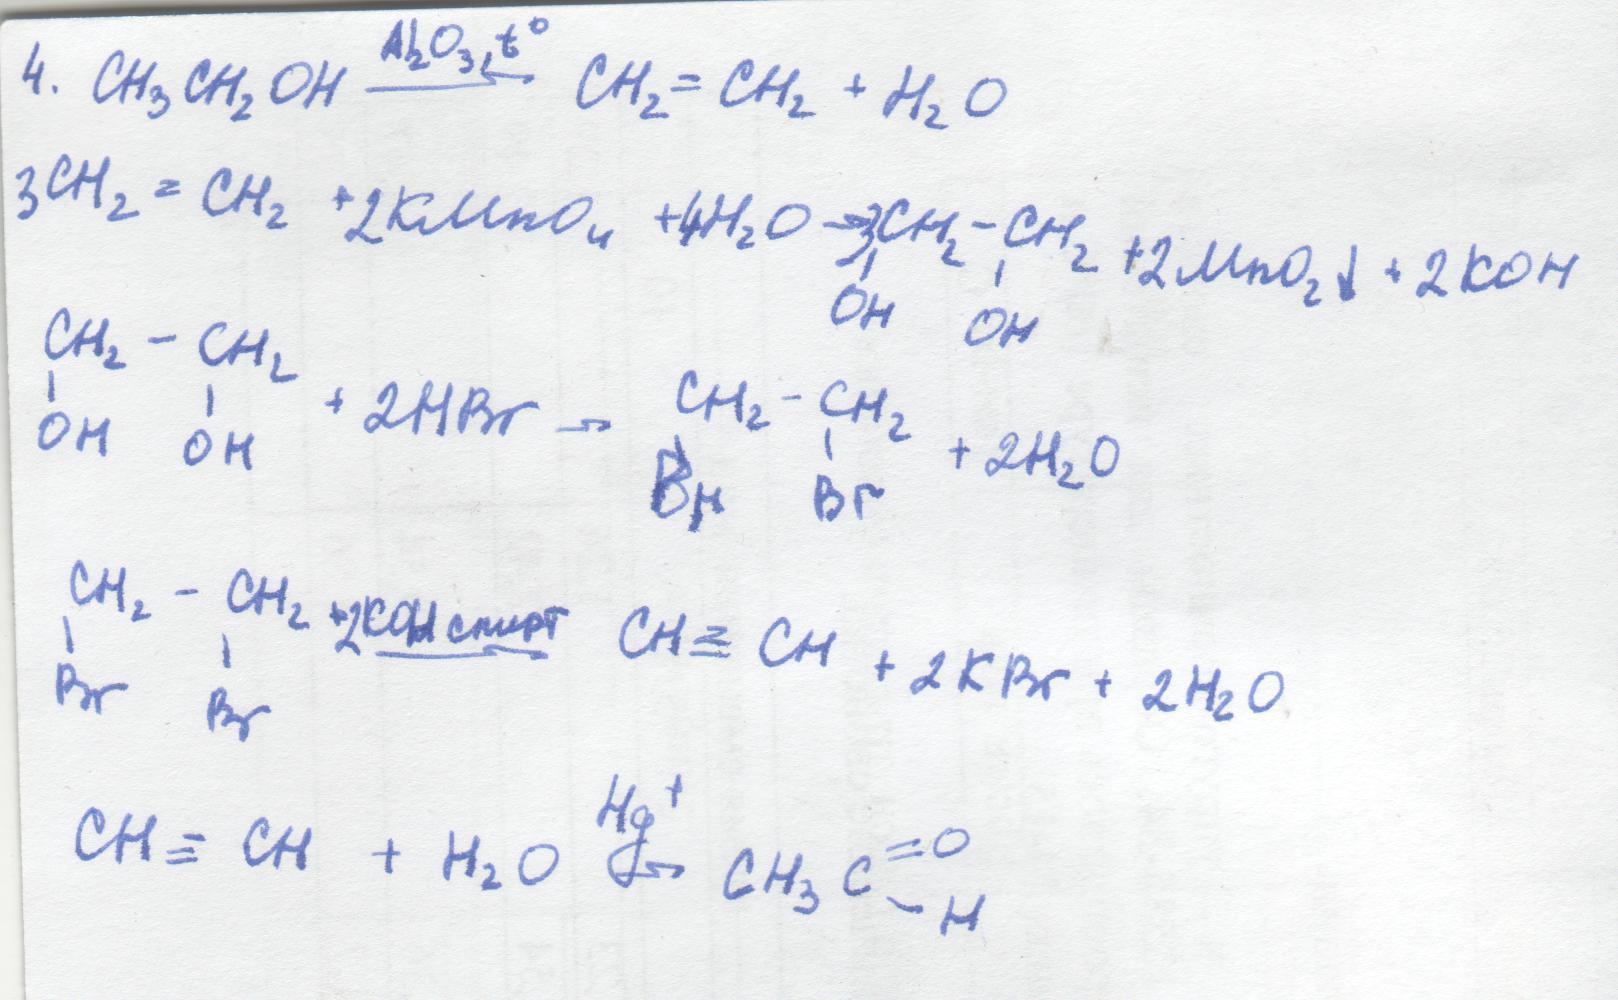 4. CH3CH2OH Al2O3, t° → CH2=CH2 + H2O
3CH2=CH2 + 2KMnO4 + 4H2O → 3CH2-CH2 + 2MnO2↓ + 2KOH
OH OH
CH2 - CH2 + 2HBr → CH2 - CH2 + 2H2O
OH OH Br Br
CH2 - CH2 + 2KOH спирт → CH≡CH + 2KBr + 2H2O
Br Br
CH≡CH + H2O Hg+ → CH3C=O
-H